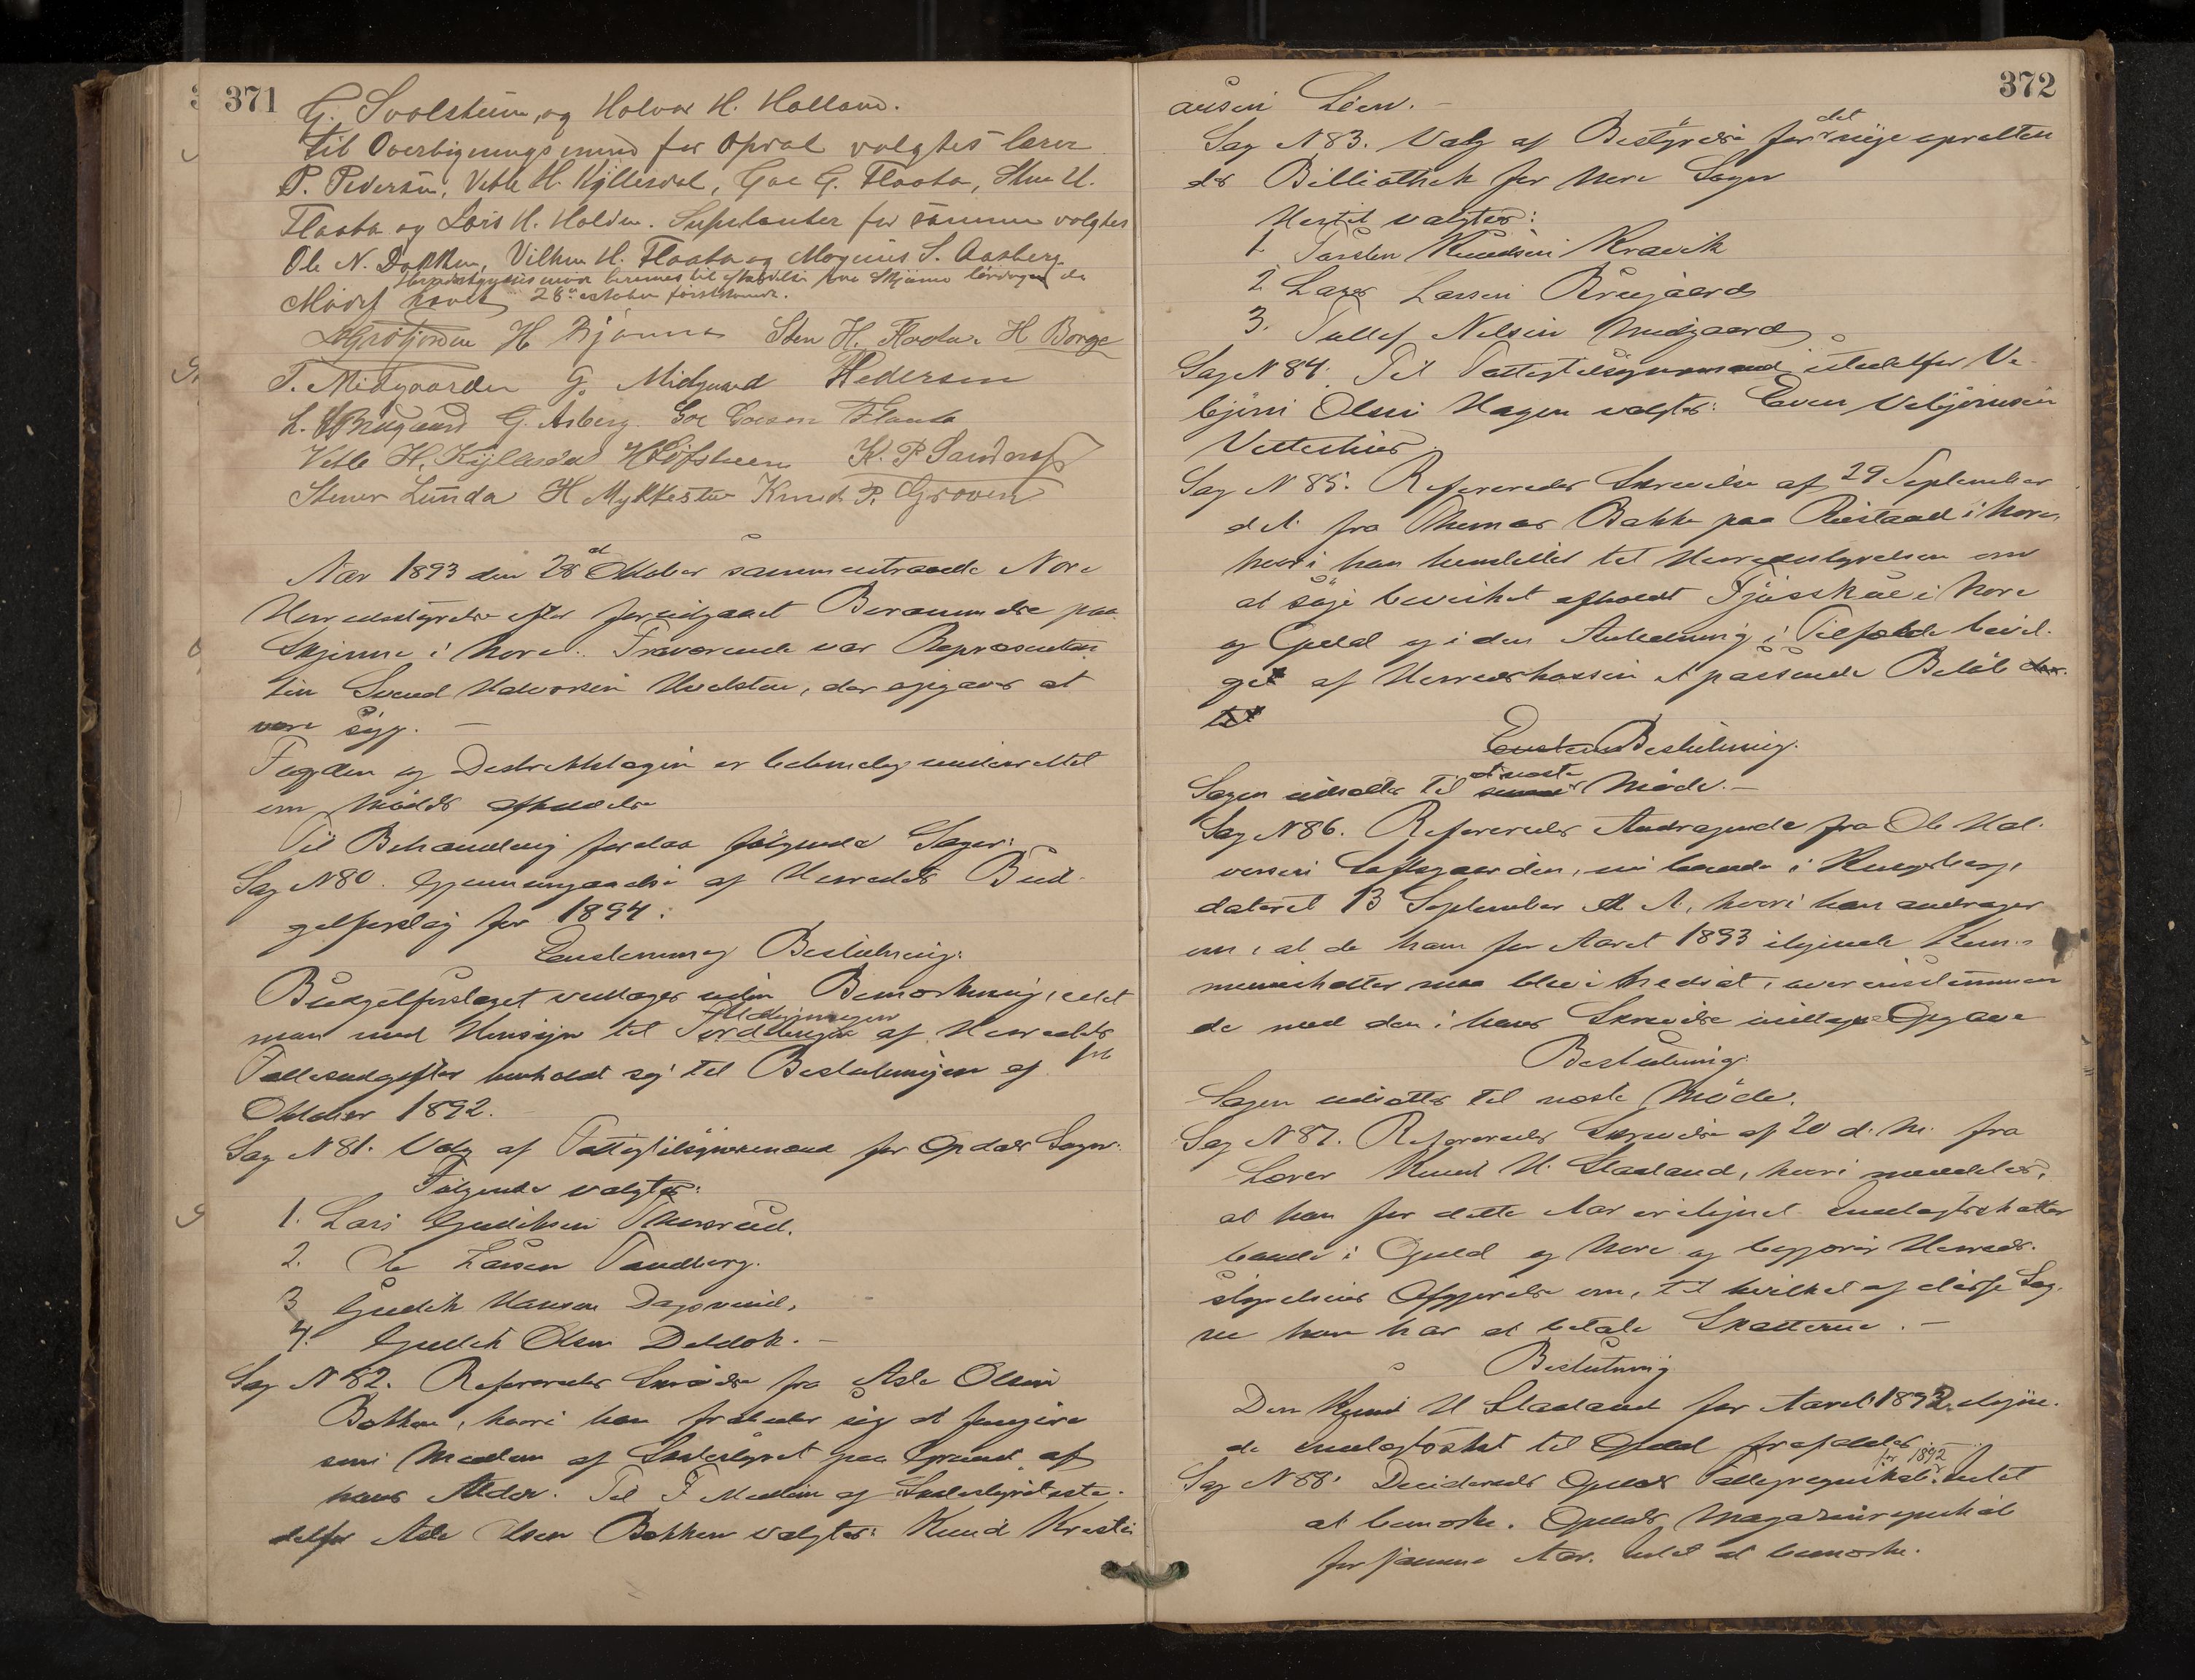 371
G. Svolsteim, og Halvor H. Halland.
til Overligningsmænd for Opdal valgtes lærer
P. Pedersen, Vetle H. Kyllesdal, Goe G. Flaata, Sten H.
Flaata og Lars H. Holden. Suplianter for samme valgtes
Ole N. Dokken, Vilhen H. Flaata og Magnus S. Aasberg.
Herredsstyrelsesmøde berammes til afholdelse paa Skjønne lørdagen de
28de october førstkom.
Mødet hævet
H Bjønnes Sten H. Flaata. H Borge
T. Midgaarden G. Midgaard PPedersen
L. Bruggaard G. Asberg Goe Goeson Flaata
Vetle H. Kyllesdal K. P Sandnes
Stener Lunda H Mykkestue Knud P. Groven
Aar 1893 den 28de Oktober sammentraadte Nore
Herredsstyrelse efter foreudgaaet Berammelse paa
Skjønne i Nore. Fraværende var Repræsentan-
ten Svend Halvorsen Hvelsten, der opgaves at
være syg. —
Fogden og Distriktslægen er betimelig underrettet
om Mødets afholdelse
Til Behandling forelaa følgende Sager:
Sag N 80. Gjennemgaaelse af Herredets Bud-
getforslag for 1894.
Enstemmig Beslutning:
Budgetforslaget vedtages uden Bemærkning, idet
man med Hensyn til Fordelingen Udligningen af Herredets
Fællesudgifter henholdt sig til Beslutningen af 1ste
Oktober 1892.
Sag N 81. Valg af Fattigtilsynsmænd for Opdals Sogn.
Følgende valgtes:
1. Lars Gudiksen Thosrud.
2. Ole Larsen Tandberg.
3 Gudik Hansen Dagsvind.
4. Gudik Olsen Deldok. —
Sag N 82. Refereredes Skrivelse fra Asle Olsen
Bakken, hvori han frabeder sig at fungere
som Medlem af Skolestyret paa Grund af
hans Alder. Til Medlem af Skolestyret iste-
detfor Asle Olsen Bakken valgtes: Knud Kristi
372
ansen Løen. —
Sag N 83. Valg af Bestyrelse for det nye opretten
de Bibliothek for Nore Sogn
Hertil valgtes:
1. Torsten Knudsen Kravik
2 Lars Larsen Bruggaard
3. Tollef Nilsen Midgaard
Sag N 84. Til Fattigtilsynsmand istedetfor Ve-
bjørn Olsen Hagen valgtes: Even Vebjørnsen
Vetterhus
Sag N 85. Refereredes Skrivelse af 29 September
d. A. fra Gunnar Bakke paa Rustaad i Nore,
hvori han henstiller til Herredsstyrelsen om
at søge bevirket afholdt Fjøsskue i Nore
og Opdal og i den Anledning i Tilfælde bevil-
get af Herredskassen et passende Beløb der-
til
Enstem Beslutning.
Sagen udsættes til et næste Møde. —
Sag N 86. Refereredes Andragende fra Ole Hal-
vorsen Loftsgaarden, nu boende i Kongsberg,
dateret 13 September d. A., hvori han andrager
om, at de ham for Aaret 1893 ilignede Kom-
muneskatter maa blive nedsat, overensstemmen
de med den i hans Skrivelse indtagne Opgave
Beslutning:
Sagen udsættes til næste Møde.
Sag N 87. Refereredes Skrivelse af 20 d. M. fra
Lærer Knud H. Staaland, hvori meddeles,
at han for dette Aar er ilignet Indtægtsskatter
baade i Opdal og Nore og begjærer Herreds-
styrelsens Afgjørelse om, til hvilket af disse Sog-
ne han har at betale Skatterne. —
Beslutning
Den Knud H Staaland for Aaret 1893 ilign-
de Indtægtsskat til Opdal frafaldes.
Sag N 88. Decideredes Opdals Fattigregnskab for 1892. Intet
at bemærke. Opdals Magasinregnskab
for samme Aar. Intet at bemærke.